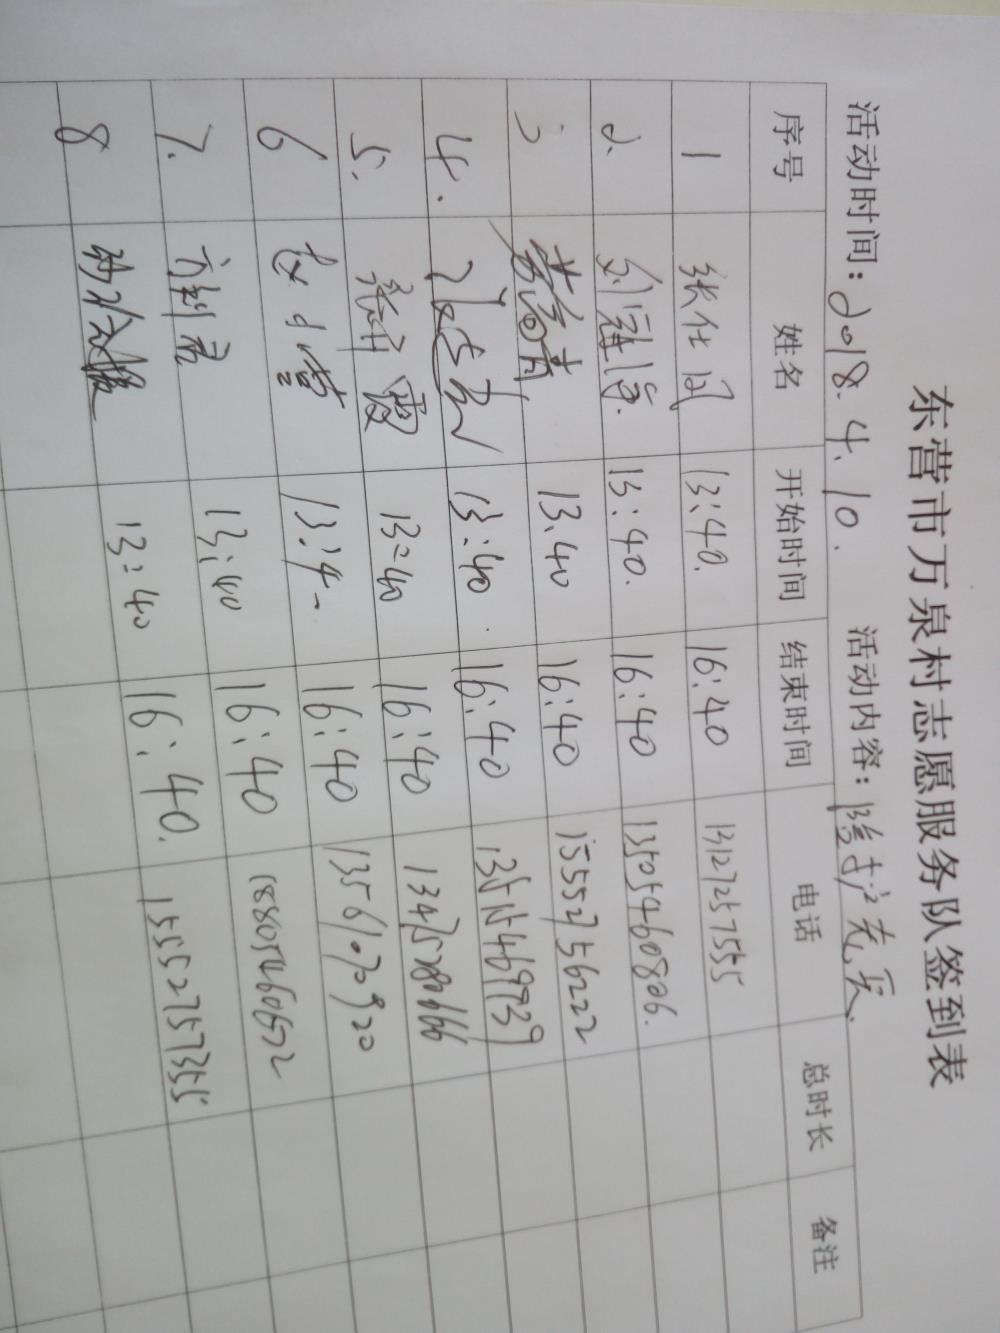 东营市万泉村志愿服务队签到表
活动时间：2018.4.10. 活动内容：
序号 姓名 开始时间 结束时间 电话 总时长 备注
1 张仕国 13:40. 16:40 13127257555
2. 13:40. 16:40 13505460806.
3 13.40 16:40 15552756222
4. 13:40. 16:40 13515469739
5. 张丽霞 13:40 16:40
6 赵小营 13:4- 16:40 13561070920
7. 13:40 16:40 18805460652
8 13:40 16:40. 15552757355